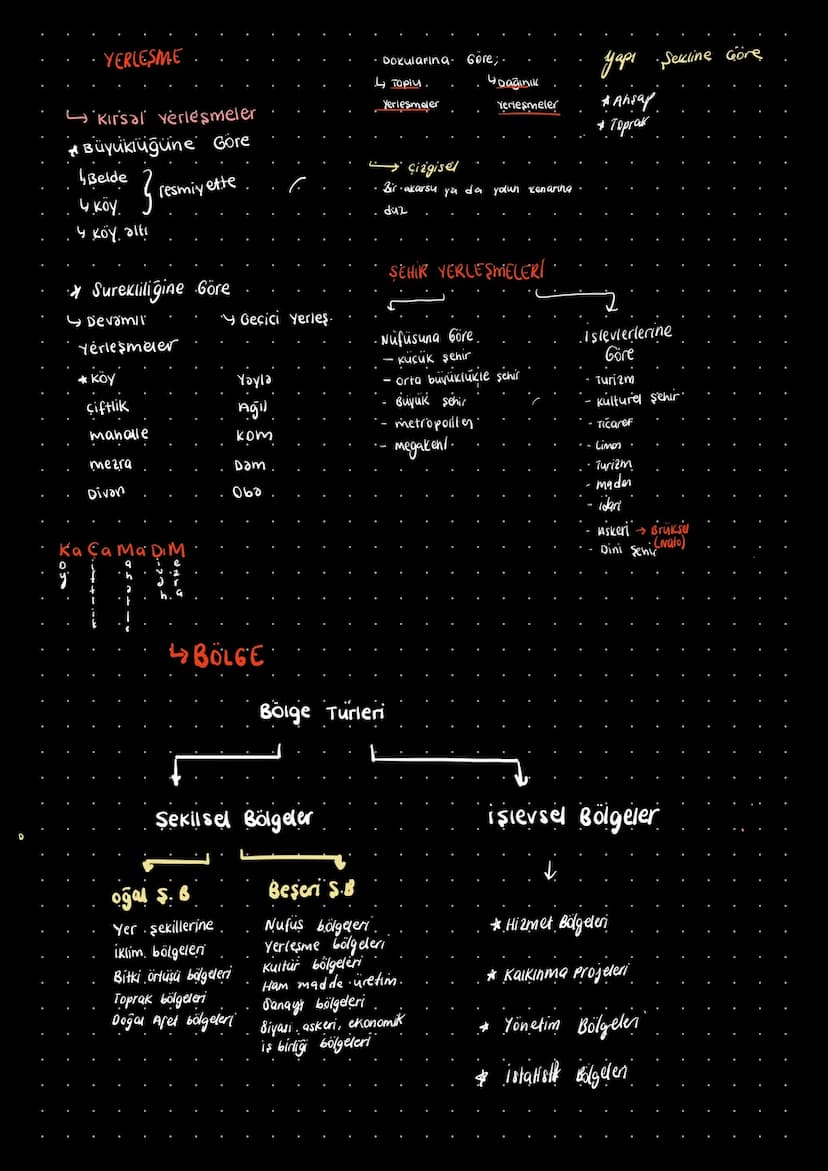 YERLEŞME
↳ Kırsal Yerleşmeler
* Büyüklüğüne Göre
↳ Belde
↳ Köy
} resmiyette
↳ Köy altı
* Surekliliğine Göre
↳ Devamlı
Yerleşmeler
* Köy
Çiftlik
Mahalle
mezra
Divan
↳ Geçici Yerleş.
Yayla
Ağıl
Kom
Dam
Oba
Ka Ça Ma Dı M
Dokularına Göre;
↳ Toplu
Yerleşmeler
↳ Dağınık
Yerleşmeler
→ Çizgisel
Bir akarsu ya da yolun kenarına
düz
Yapı Şekline Göre
* Ahşap
* Toprak
ŞEHİR YERLEŞMELERİ
Nüfusuna Göre
- küçük şehir
- orta büyüklükte şehir
- Büyük şehir
- metropoller
- megakent
İşlevlerlerine
Göre
- Turizm
- Kültürel şehir
- Ticaret
- Liman
- Turizm
- maden
- idari
- Askeri → Brüksel
(Nato)
- Dini Şehir
↳ BÖLGE
Bölge Türleri
Şekilsel Bölgeler
Doğal Ş. B
Yer şekillerine
iklim bölgeleri
Bitki örtüsü bölgeleri
Toprak bölgeleri
Doğal Afet bölgeleri
Beşeri Ş.B
Nüfus bölgeleri
Yerleşme bölgeleri
Kültür bölgeleri
Ham madde üretim
Sanayi bölgeleri
Siyasi, askeri, ekonomik
iş birliği bölgeleri
işlevsel Bölgeler
* Hizmet Bölgeleri
* Kalkınma Projeleri
* Yönetim Bölgeleri
* istatistik Bölgeleri